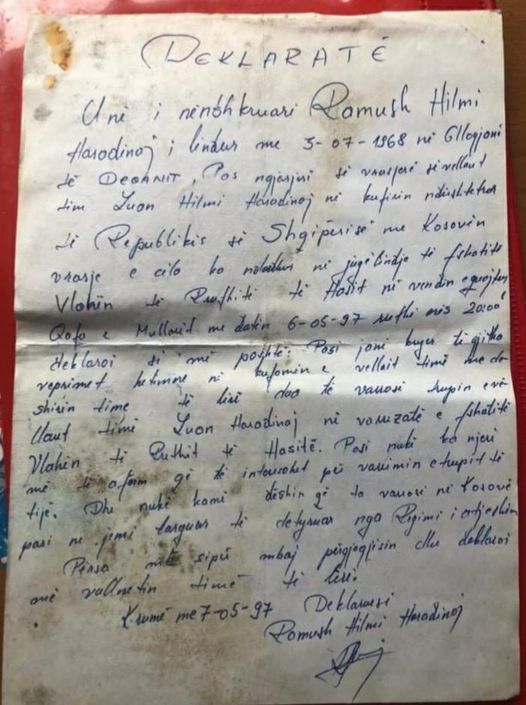 DEKLARATË
Unë i nënshkruari Ramush Hilmi
Haradinaj i lindur me 3-07-1968 në Gllogjani
të DEÇANIT, Pas ngjarjes së vrasjes së vellaut
tim Luan Hilmi Haradinaj në kufirin ndërshtetror
të Republikës së Shqipërisë me Kosovën
vrasje e cila ka ndodhur në juglindje të fshatit
Vlahën të Ruthit të Hasit në vendin e quajtur
Qafa e Mullarit me datën 6-05-97 rreth orës 20:00
deklaroj si më poshtë: Pasi janë kryer të gjitha
veprimet hetimore në kufomën e vellait timë me dë
shirën time të lirë dua të varrosi trupin e vë
llaut timë Luan Haradinaj në varrezatë e fshatitë
Vlahën të Ruthit të Hasitë. Pasi nukë ka njeri
më të afërm që të intersohet për varrimin e trupit të
tije. Dhe nukë kami dëshirë që ta varrosi në Kosovë
pasi ne jemi larguar të detyruar nga Regjimi i atjeshëm
Përsa më sipër mbaj përgjegjësin dhe deklaroj
me vullnetin timë të lirë
Krumë me 7-05-97 Deklaruesi
Ramush Hilmi Haradinaj